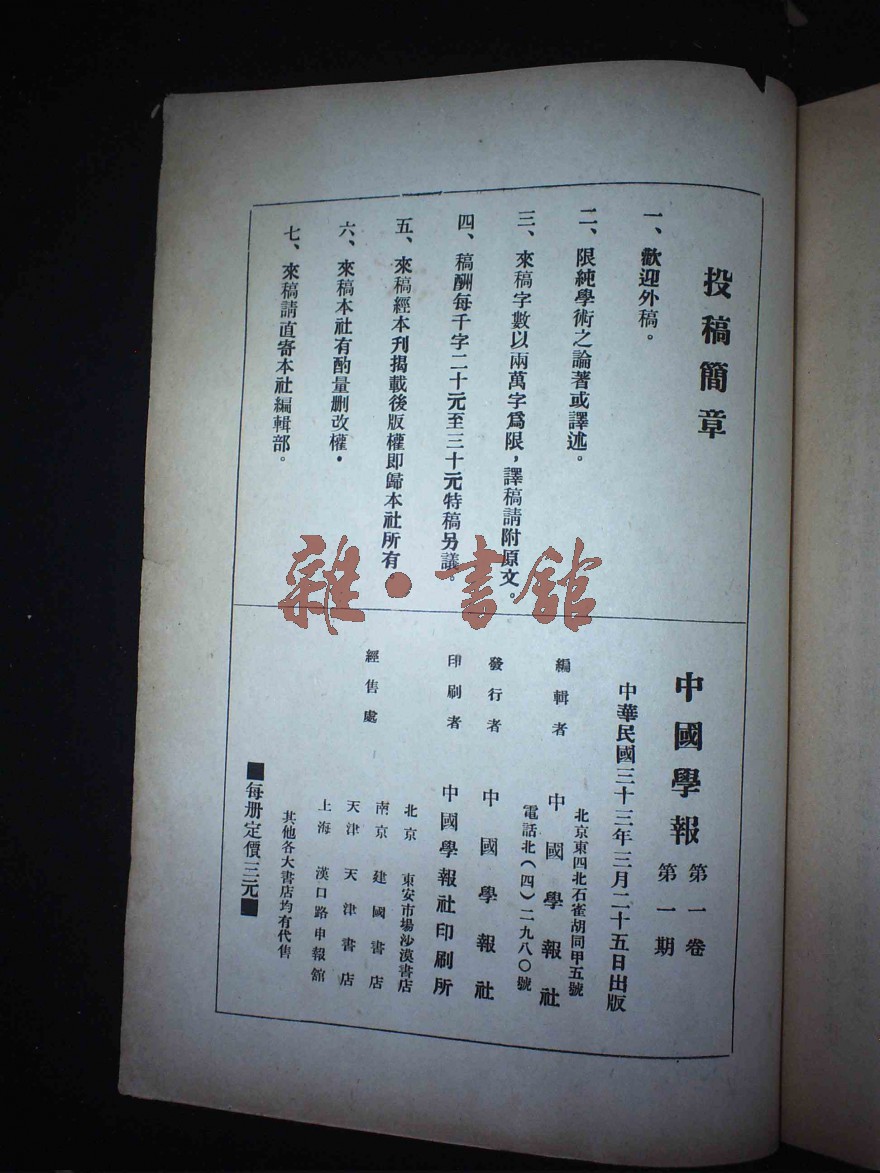 投稿簡章
一、歡迎外稿。
二、限純學術之論著或譯述。
三、來稿字數以兩萬字爲限，譯稿請附原文。
四、稿酬每千字二十元至三十元特稿另議。
五、來稿經本刊揭載後版權即歸本社所有
六、來稿本社有酌量删改權・
七、來稿請直寄本社編輯部。
中國學報 第一卷 第一期
中華民國三十三年三月二十五日出版
編輯者 中國學報社
北京東四北石雀胡同甲五號
電話北（四）二九八〇號
發行者 中國學報社
印刷者 中國學報社印刷所
經售處
北京 東安市場沙漠書店
南京 建國書店
天津 天津書店
上海 漢口路申報館
其他各大書店均有代售
■每册定價三元■
雜・書館